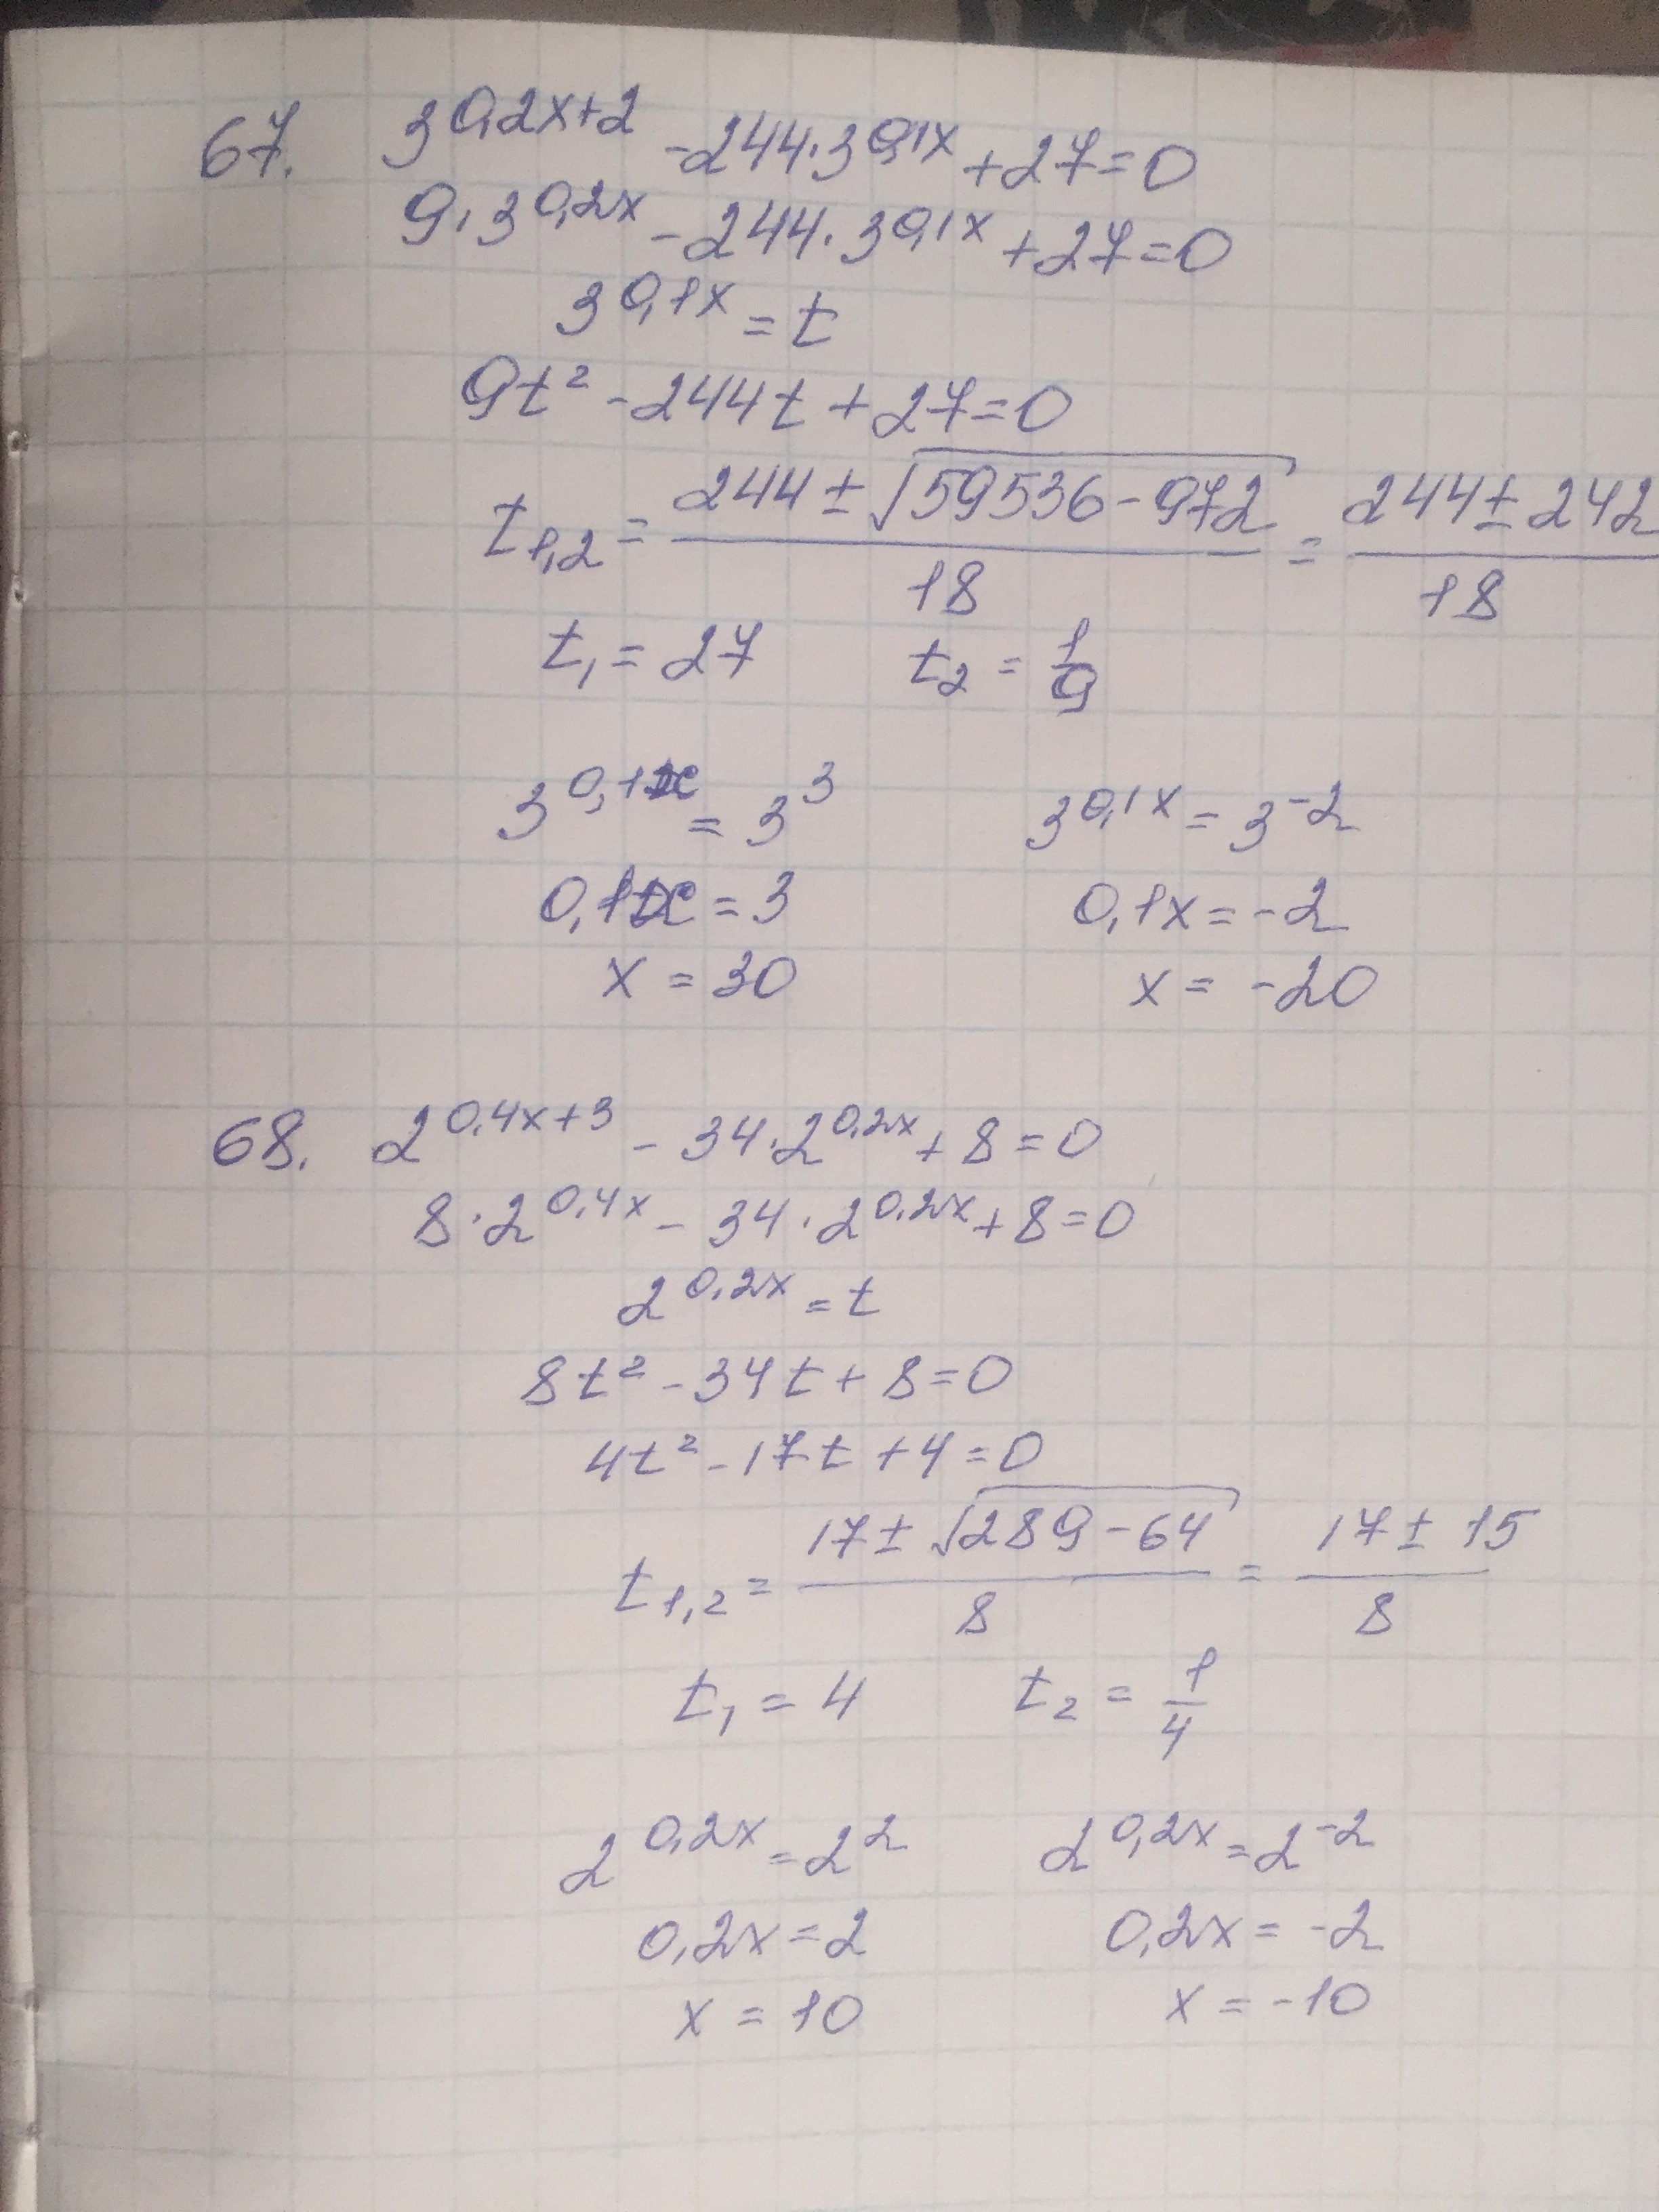 67. 3^{0,2x+2} - 244 · 3^{0,1x} + 27 = 0
9 · 3^{0,2x} - 244 · 3^{0,1x} + 27 = 0
3^{0,1x} = t
9t² - 244t + 27 = 0
t_{1,2} = (244 ± √(59536 - 972)) / 18 = (244 ± 242) / 18
t₁ = 27 t₂ = 1/9
3^{0,1x} = 3³ 3^{0,1x} = 3^{-2}
0,1x = 3 0,1x = -2
x = 30 x = -20
68. 2^{0,4x+3} - 34 · 2^{0,2x} + 8 = 0
8 · 2^{0,4x} - 34 · 2^{0,2x} + 8 = 0
2^{0,2x} = t
8t² - 34t + 8 = 0
4t² - 17t + 4 = 0
t_{1,2} = (17 ± √(289 - 64)) / 8 = (17 ± 15) / 8
t₁ = 4 t₂ = 1/4
2^{0,2x} = 2² 2^{0,2x} = 2^{-2}
0,2x = 2 0,2x = -2
x = 10 x = -10